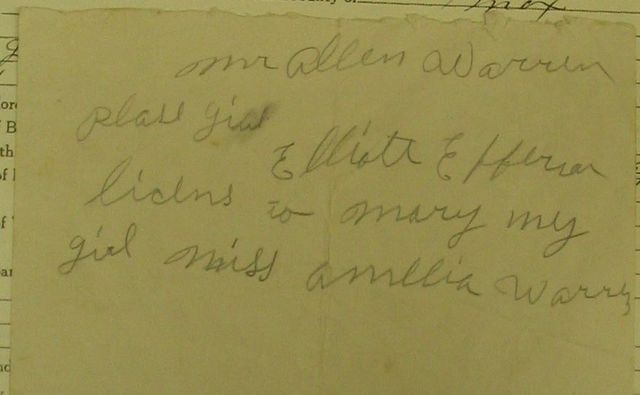 mr Allen Warren
please give
Elliott Efferson
licens to mary my
girl miss amelia Warren